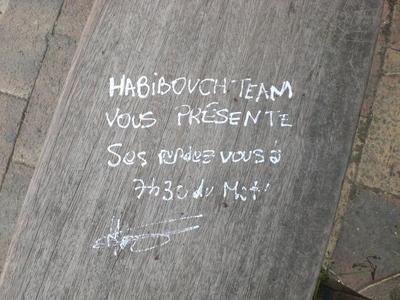 HABIBOUCH'TEAM
VOUS PRÉSENTE
Ses rendez vous à
7h30 du Mat!